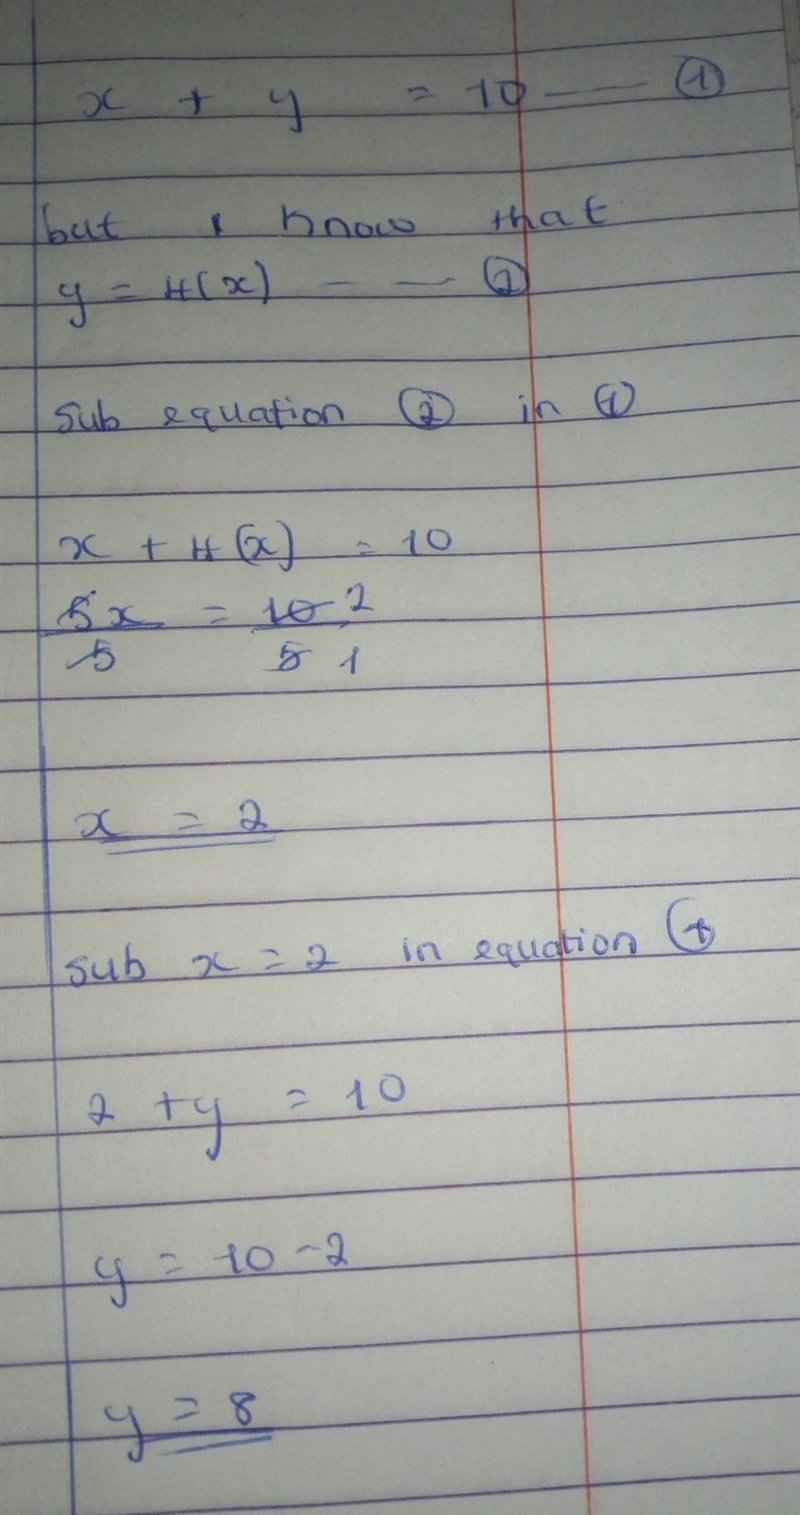 x + y = 10 —— ①
but I know that
y = 4(x) — — ②
Sub equation ② in ①
x + 4(x) = 10
5x = 10 2
5 5 1
x = 2
Sub x = 2 in equation ①
2 + y = 10
y = 10 - 2
y = 8